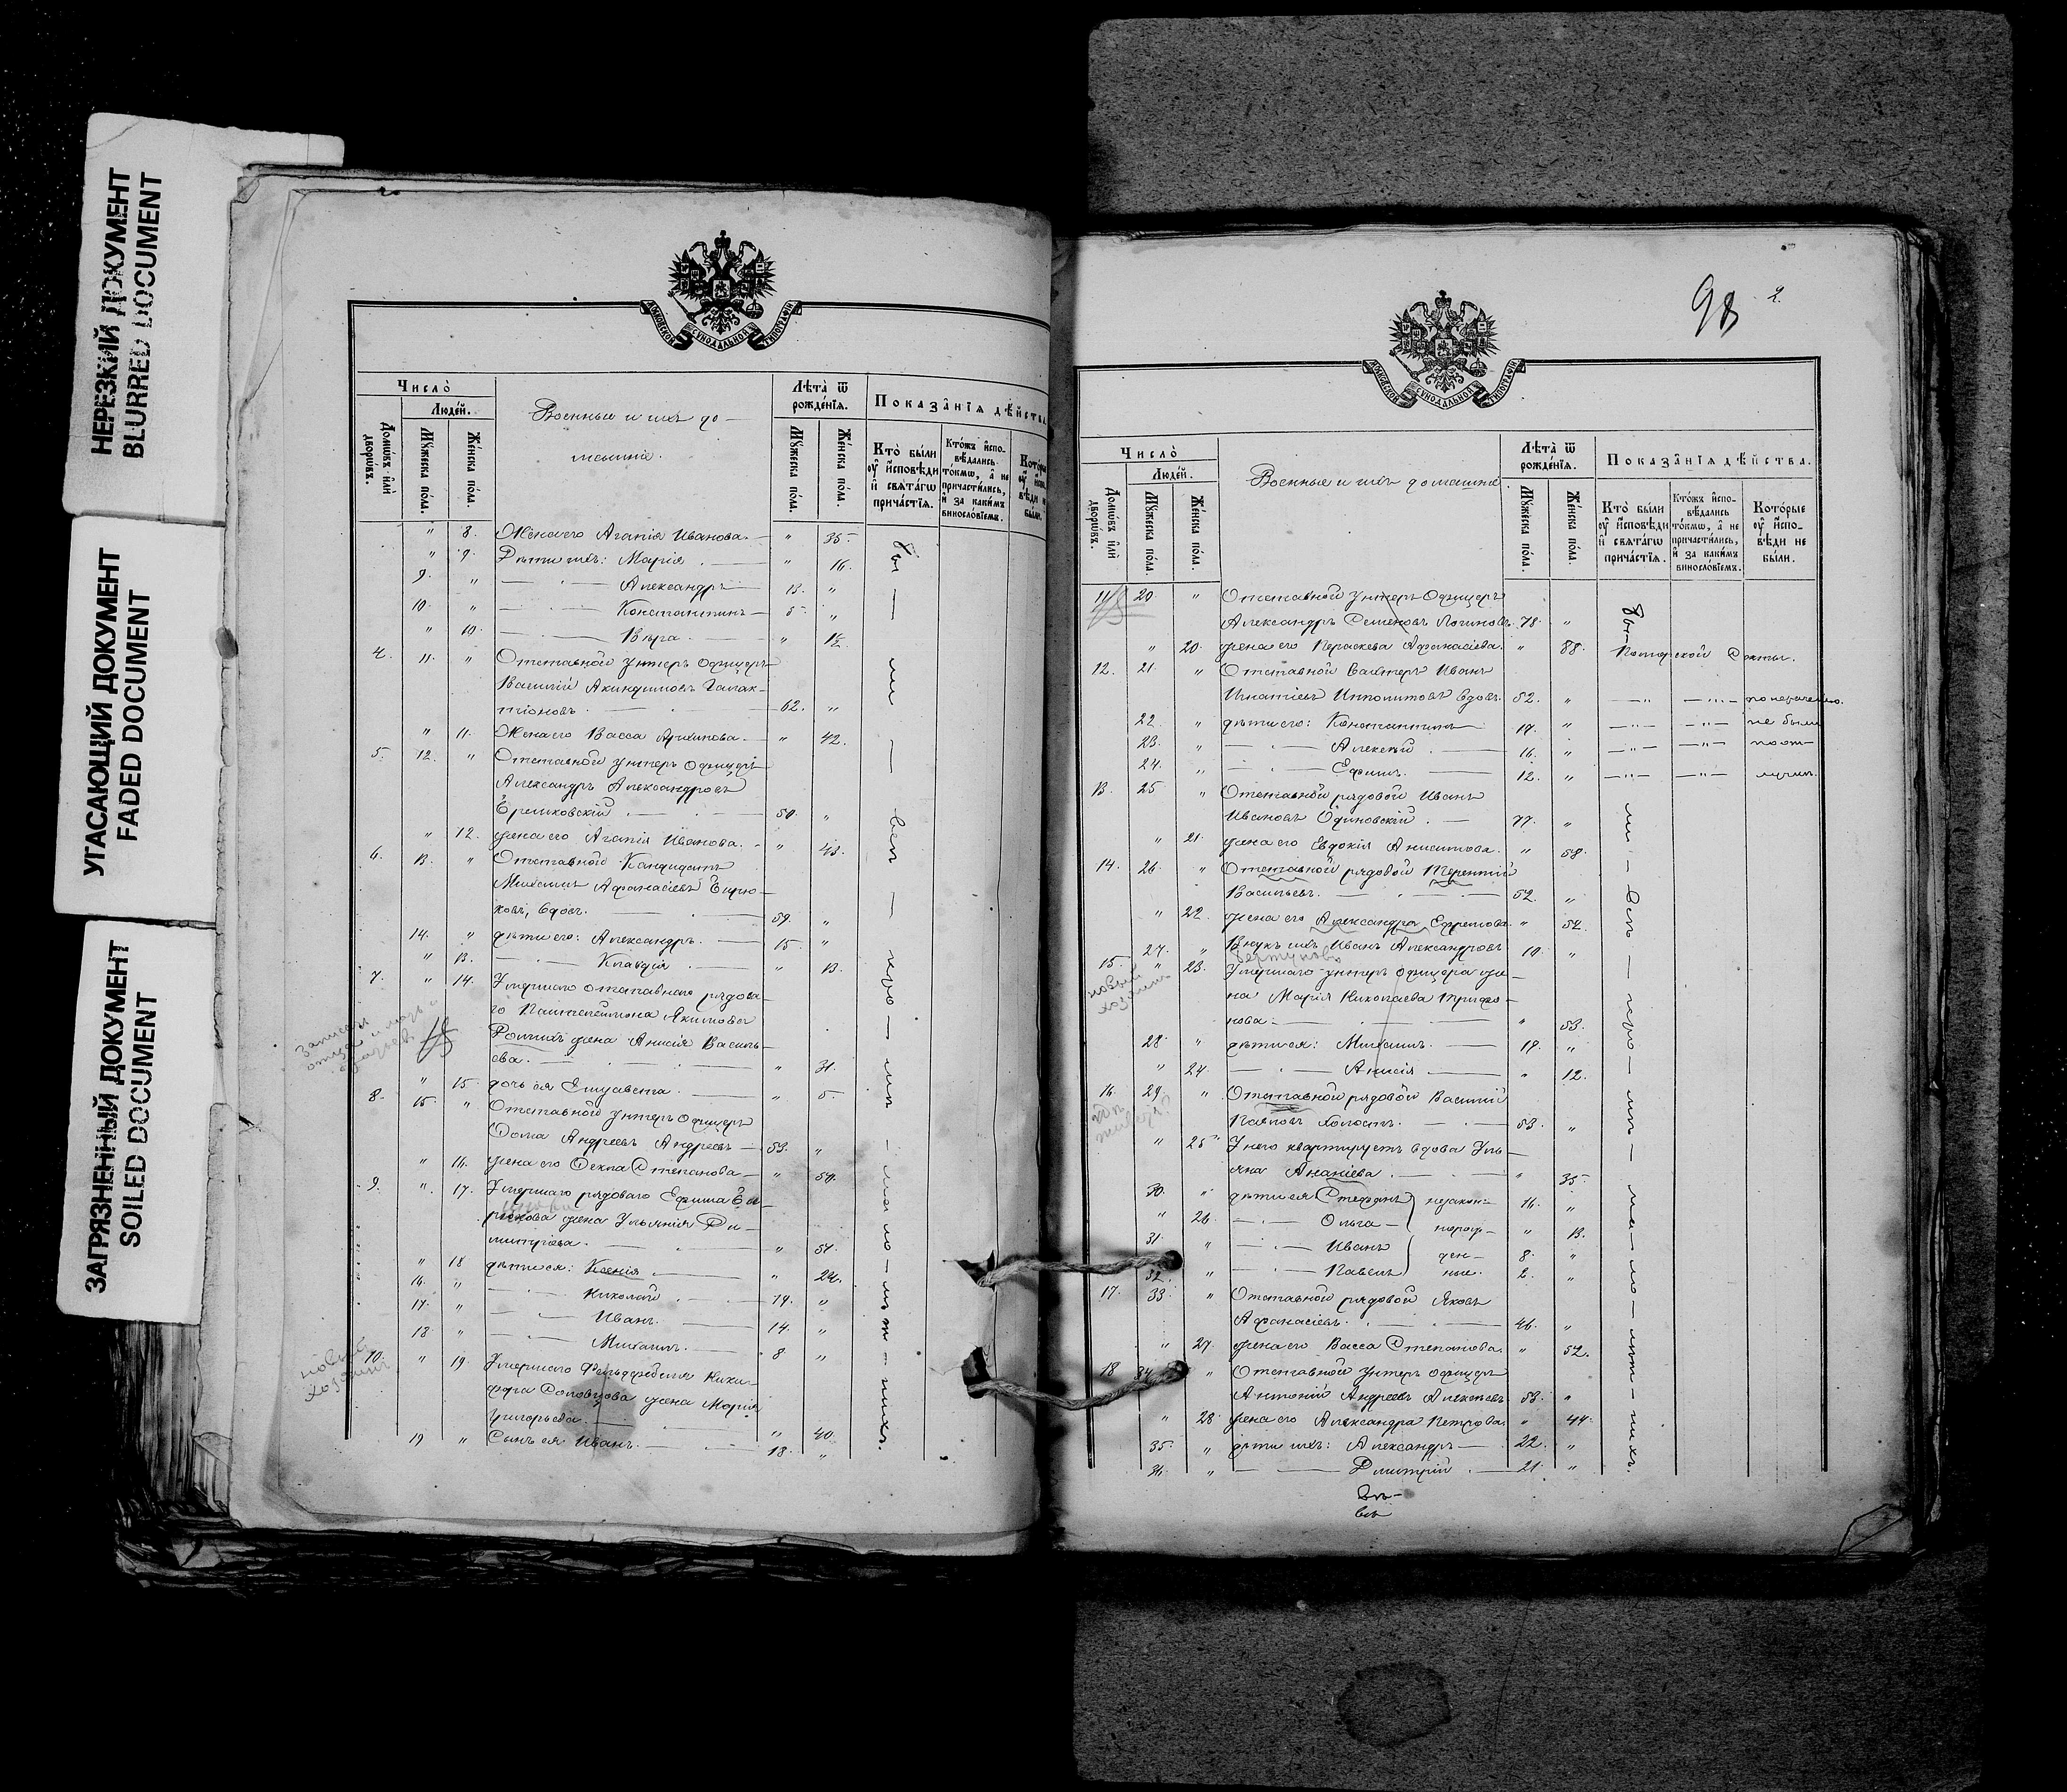 НЕРЕЗКИЙ ДОКУМЕНТ
BLURRED DOCUMENT
УГАСАЮЩИЙ ДОКУМЕНТ
FADED DOCUMENT
ЗАГРЯЗНЕННЫЙ ДОКУМЕНТ
SOILED DOCUMENT
МОСКОВСКОЙ СУНОДАЛЬНОЙ ТИПОГРАФІИ
Число̀
Люде́й.
Домѡ́въ и҆лѝ дворѡ́въ.
Мꙋ́жеска по́ла.
Же́нска по́ла.
Военные и ихъ до-
машніе.
Лѣ́та ѿ рожде́нїѧ.
Мꙋ́жеска по́ла.
Же́нска по́ла.
Показа̑нїѧ дѣ́йства.
Кто̀ бы́ли ᲂу҆ и҆сповѣди и҆ свѧта́гѡ прича́стїѧ.
Кто́жъ и҆спо- вѣ́дались то́кмѡ, а҆ не причасти́лись, и҆ за каки́мъ винослові́емъ.
" 8. Жена его Агапія Иванова. — " 35.
" 9. Дѣти ихъ: Марія. — " 16.
9. " — Александръ — 13. "
10. " — Константинъ — 5. "
" 10. — Вѣра. — " 1½
4. 11. " Отставной унтеръ офицеръ
Василій Акиндиновъ Галак-
тіоновъ. — 62. "
" 11. Жена его Васса Архипова. — " 42.
5. 12. " Отставной унтеръ офицеръ
Александръ Александровъ
Ерошковскій. — 50. "
" 12. жена его Агапія Иванова. " 43.
6. 13. " Отставной Кандидатъ
Михаилъ Афанасіевъ Бирю-
ковъ, вдовъ. — 59. "
14. " дѣти его: Александръ. — 15. "
" 13. — Клавдія. — " 13.
7. " 14. Умершаго отставнаго рядова-
го Пантелеимона Якимова
жена Анисія Василь-
ева. — " 31.
" 15. дочь ея Елизавета. — " 5.
8. 15. " Отставной унтеръ офицеръ
Ѳома Андреевъ Андреевъ — 53. "
" 16. жена его Ѳекла Степанова — " 50.
9. " 17. Умершаго рядоваго Ефима Би-
рюкова жена Ульянія Ди-
митріева. — " 54.
" 18 дѣти ея: Ксенія. — " 24.
16. " — Николай. 19. "
17. " — Иванъ. — 14. "
18 " — Михаилъ. — 8. "
новый хозяинъ
10. " 19. Умершаго Фельдфебеля Ники-
фора Соловцова жена Марія
Григорьева. — " 40.
19 " Сынъ ея Иванъ. — 18. "
бы — ли — всѣ — кро — мѣ — ма — ло — лѣт — нихъ.
98 2.
МОСКОВСКОЙ СУНОДАЛЬНОЙ ТИПОГРАФІИ
Число̀
Люде́й.
Домѡ́въ и҆лѝ дворѡ́въ.
Мꙋ́жеска по́ла.
Же́нска по́ла.
Военные и ихъ домашніе
Лѣ́та ѿ рожде́нїѧ.
Мꙋ́жеска по́ла.
Же́нска по́ла.
Показа̑нїѧ дѣ́йства.
Кто̀ бы́ли ᲂу҆ и҆сповѣди и҆ свѧта́гѡ прича́стїѧ.
Кто́жъ и҆спо- вѣ́дались то́кмѡ, а҆ не причасти́лись, и҆ за каки́мъ винослові́емъ.
Кото́рые ᲂу҆ и҆спо- вѣди не бы́ли.
11 20 " Отставной унтеръ офицеръ
Александръ Семеновъ Логиновъ 78. "
" 20. жена его Параскева Афанасіева. " 88. Поморской Секты.
12. 21. " Отставной Вахтеръ Иванъ
Игнатіевъ Ипполитовъ вдовъ. 52. "
22. " дѣти его: Константинъ 19. " не были
23. " — Алексѣй. — 16. "
24. " — Ефимъ. — 12. "
13. 25 " Отставной рядовой Иванъ
Ивановъ Одиновскій. — 77. "
" 21. жена его Евдокія Анисимова. " 58.
14. 26. " Отставной рядовой Терентій
Васильевъ. — 52. "
" 22. жена его Александра Ефремова. " 52.
27. " Внукъ ихъ Иванъ Александровъ 10. "
15. " 23. Умершаго унтеръ офицера же-
новый хозяинъ
на Марія Николаева Трифо-
нова. — " 53.
28. " дѣти ея: Михаилъ. — 19. "
" 24. — Анисія — " 12.
16. 29. " Отставной рядовой Василій
Павловъ Холостъ. — 53. "
" 25. У него квартируетъ вдова Уль-
яна Ананіева. — " 35.
30. " дѣти ея Стефанъ незакон- 16. "
" 26. — Ольга — норож- " 13.
31. " — Иванъ ден- 8. "
32. " — Павелъ ные. 2. "
17. 33. " Отставной рядовой Яковъ
Афанасіевъ. — 46. "
" 27. жена его Васса Степанова. " 52.
18 34 " Отставной унтеръ офицеръ
Антоній Андреевъ Алексѣевъ 53. "
" 28. жена его Александра Петрова. " 44.
35. " дѣти ихъ: Александръ — 22. "
36. " — Дмитрій. — 21. "
бы — ли — всѣ — кро — мѣ — ма — ло — лѣт — нихъ.